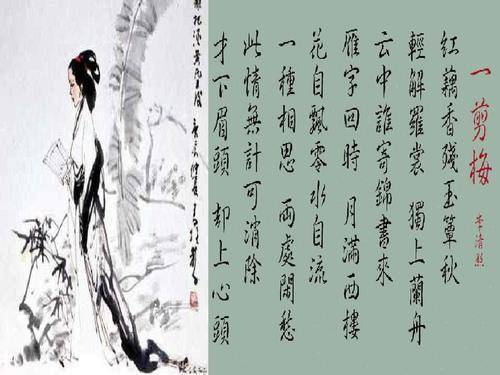 一剪梅
李清照
紅藕香殘玉簟秋
輕解羅裳 獨上蘭舟
云中誰寄錦書來
雁字回時 月滿西樓
花自飄零水自流
一種相思 兩處閒愁
此情無計可消除
才下眉頭 却上心頭